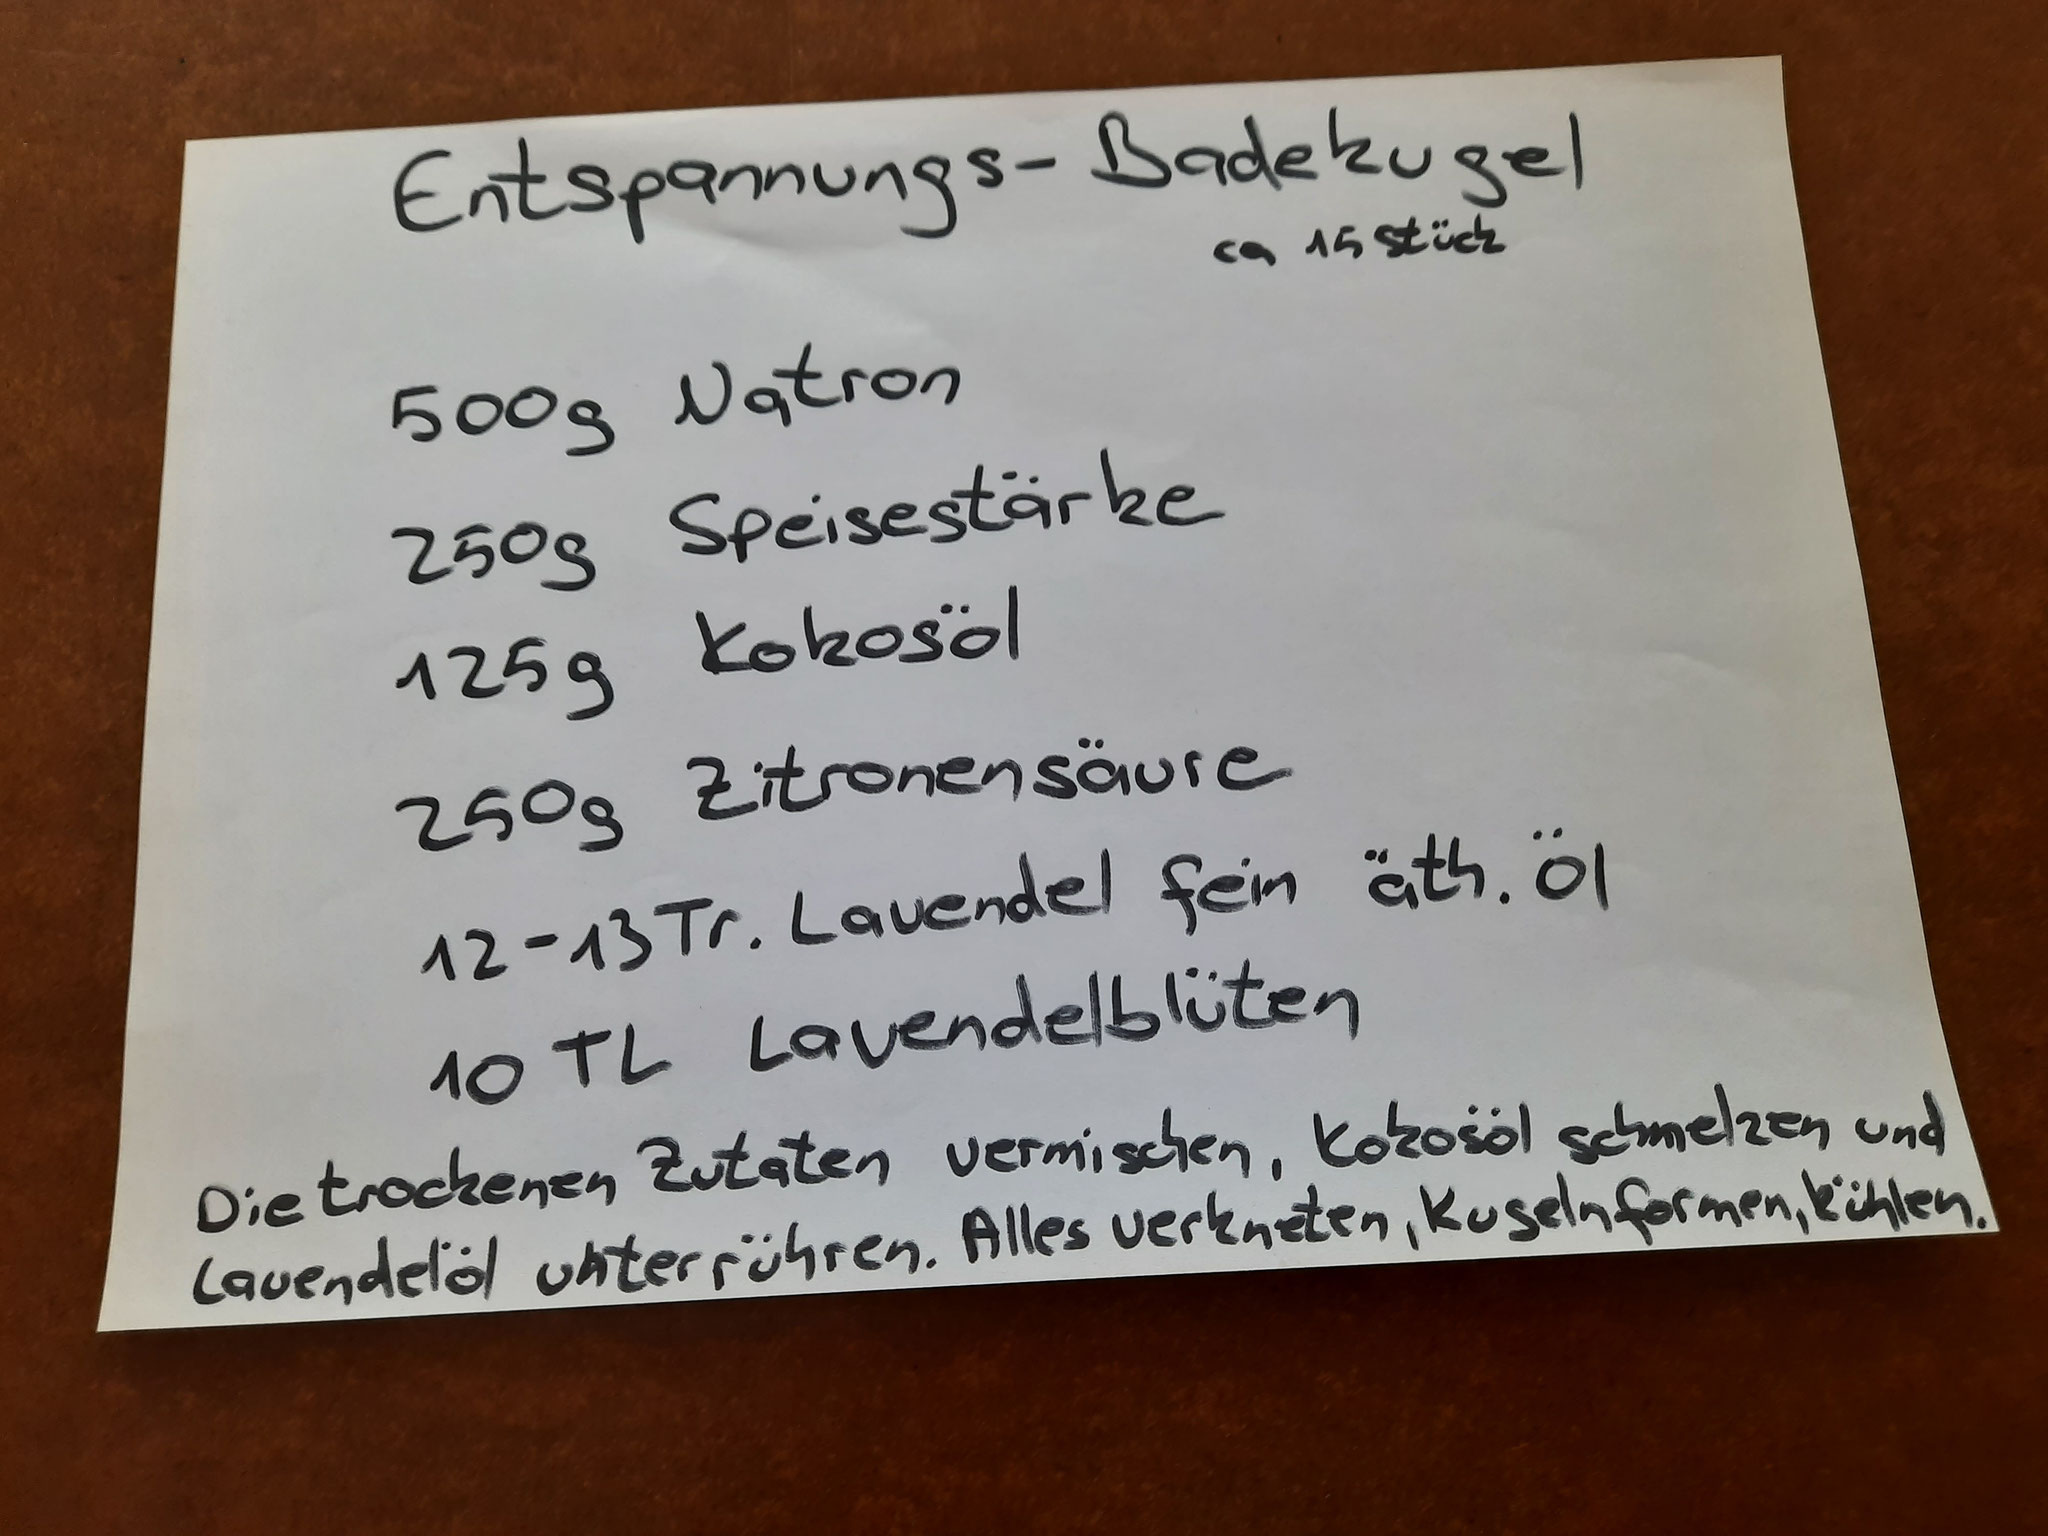 Entspannungs-Badekugel
ca 15 Stück
500g Natron
250g Speisestärke
125g Kokosöl
250g Zitronensäure
12-13 Tr. Lavendel fein äth. Öl
10 TL Lavendelblüten
Die trockenen Zutaten vermischen, Kokosöl schmelzen und
Lavendelöl unterrühren. Alles verkneten, Kugeln formen, kühlen.